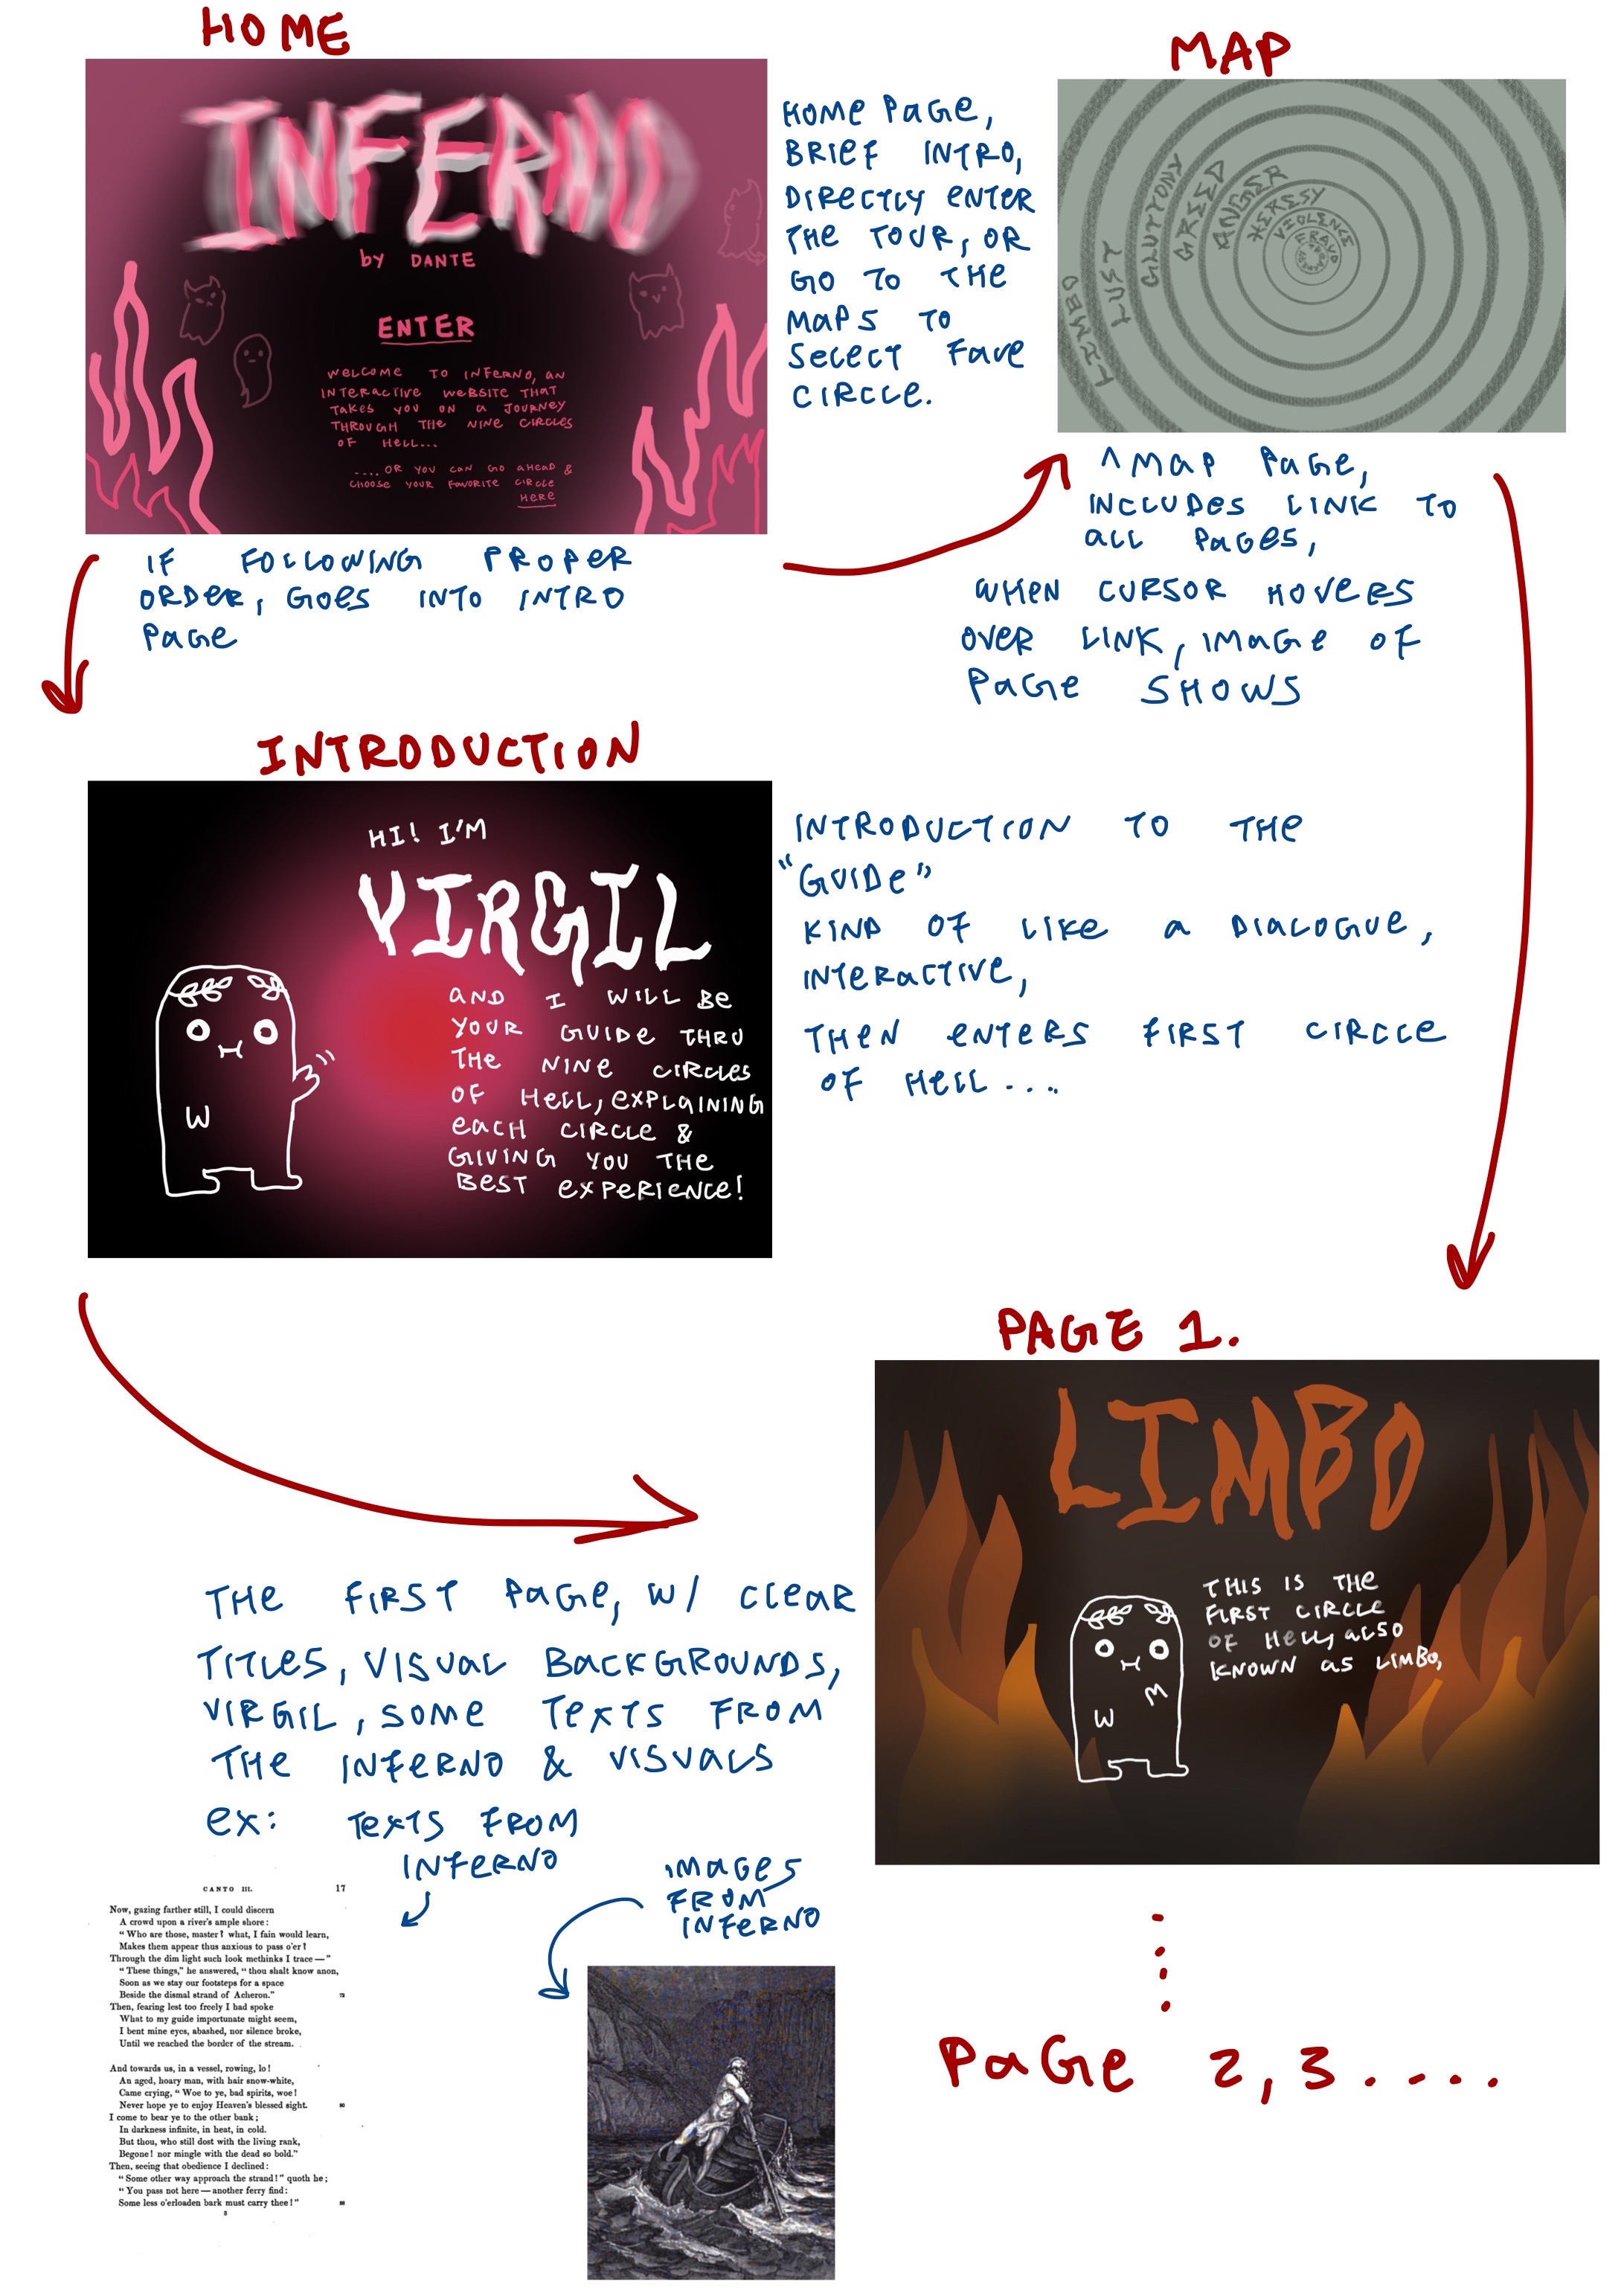 HOME
INFERNO
by DANTE
ENTER
WELCOME TO INFERNO, AN
INTERACTIVE WEBSITE THAT
TAKES YOU ON A JOURNEY
THROUGH THE NINE CIRCLES
OF HELL...
....OR YOU CAN GO AHEAD &
CHOOSE YOUR FAVORITE CIRCLE
HERE
HOME PAGE,
BRIEF INTRO,
DIRECTLY ENTER
THE TOUR, OR
GO TO THE
MAPS TO
SELECT FAVE
CIRCLE.
MAP
LIMBO
LUST
GLUTTONY
GREED
ANGER
HERESY
VIOLENCE
FRAUD
^ MAP PAGE,
INCLUDES LINK TO
ALL PAGES,
WHEN CURSOR HOVERS
OVER LINK, IMAGE OF
PAGE SHOWS
IF FOLLOWING PROPER
ORDER, GOES INTO INTRO
PAGE
INTRODUCTION
HI! I'M
VIRGIL
AND I WILL BE
YOUR GUIDE THRU
THE NINE CIRCLES
OF HELL, EXPLAINING
EACH CIRCLE &
GIVING YOU THE
BEST EXPERIENCE!
INTRODUCTION TO THE
"GUIDE"
KIND OF LIKE A DIALOGUE,
INTERACTIVE,
THEN ENTERS FIRST CIRCLE
OF HELL...
PAGE 1.
LIMBO
THIS IS THE
FIRST CIRCLE
OF HELL, ALSO
KNOWN AS LIMBO,
THE FIRST PAGE, W/ CLEAR
TITLES, VISUAL BACKGROUNDS,
VIRGIL, SOME TEXTS FROM
THE INFERNO & VISUALS
EX: TEXTS FROM
INFERNO
IMAGES
FROM
INFERNO
CANTO III. 17
Now, gazing farther still, I could discern
A crowd upon a river's ample shore:
"Who are those, master? what, I fain would learn,
Makes them appear thus anxious to pass o'er?
Through the dim light such look methinks I trace—"
"These things," he answered, "thou shalt know anon,
Soon as we stay our footsteps for a space
Beside the dismal strand of Acheron."
Then, fearing lest too freely I had spoke
What to my guide importunate might seem,
I bent mine eyes, abashed, nor silence broke,
Until we reached the border of the stream.
And towards us, in a vessel, rowing, lo!
An aged, hoary man, with hair snow-white,
Came crying, "Woe to ye, bad spirits, woe!
Never hope ye to enjoy Heaven's blessed sight.
I come to bear ye to the other bank;
In darkness infinite, in heat, in cold.
But thou, who still dost with the living rank,
Begone! nor mingle with the dead so bold."
Then, seeing that obedience I declined:
"Some other way approach the strand!" quoth he;
"You pass not here—another ferry find:
Some less o'erloaden bark must carry thee!"
PAGE 2, 3.....